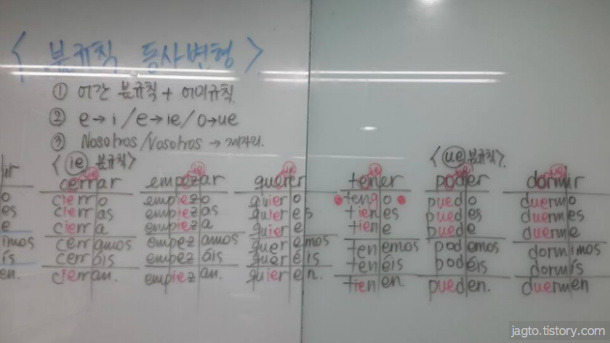 < 불규칙 동사변형 >
① 어간 불규칙 + 어미규칙.
② e→i / e→ie / o→ue
③ Nosotros/Vosotros →
< ie 불규칙 > < ue 불규칙 >
cerrar empezar querer tener poder dormir
o cierro empiezo quiero tengo puedo duermo
es cierras empiezas quieres tienes puedes duermes
e cierra empieza quiere tiene puede duerme
imos cerramos empezamos queremos tenemos podemos dormimos
ís cerráis empezáis queréis tenéis podéis dormís
en. cierran. empiezan. quieren. tienen. pueden. duermen
jagto.tistory.com